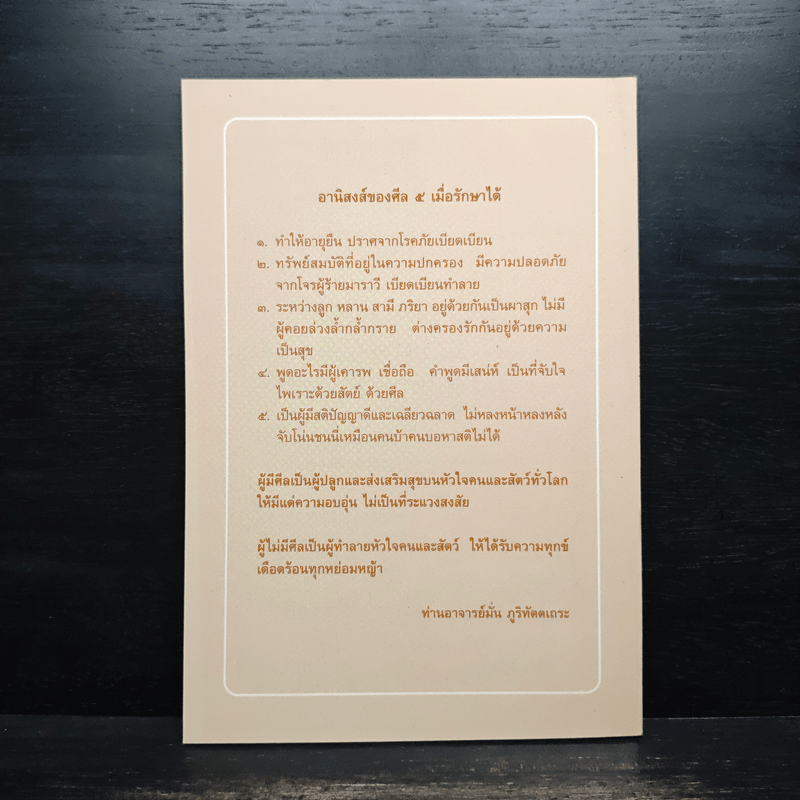 อานิสงส์ของศีล ๕ เมื่อรักษาได้
๑. ทำให้อายุยืน ปราศจากโรคภัยเบียดเบียน
๒. ทรัพย์สมบัติที่อยู่ในความปกครอง มีความปลอดภัย
จากโจรผู้ร้ายมาราวี เบียดเบียนทำลาย
๓. ระหว่างลูก หลาน สามี ภริยา อยู่ด้วยกันเป็นผาสุก ไม่มี
ผู้คอยล่วงล้ำกล้ำกราย ต่างครองรักกันอยู่ด้วยความ
เป็นสุข
๔. พูดอะไรมีผู้เคารพ เชื่อถือ คำพูดมีเสน่ห์ เป็นที่จับใจ
ไพเราะด้วยสัตย์ ด้วยศีล
๕. เป็นผู้มีสติปัญญาดีและเฉลียวฉลาด ไม่หลงหน้าหลงหลัง
จับโน่นชนนี่เหมือนคนบ้าคนบอหาสติไม่ได้
ผู้มีศีลเป็นผู้ปลูกและส่งเสริมสุขบนหัวใจคนและสัตว์ทั่วโลก
ให้มีแต่ความอบอุ่น ไม่เป็นที่ระแวงสงสัย
ผู้ไม่มีศีลเป็นผู้ทำลายหัวใจคนและสัตว์ ให้ได้รับความทุกข์
เดือดร้อนทุกหย่อมหญ้า
ท่านอาจารย์มั่น ภูริทัตตเถระ